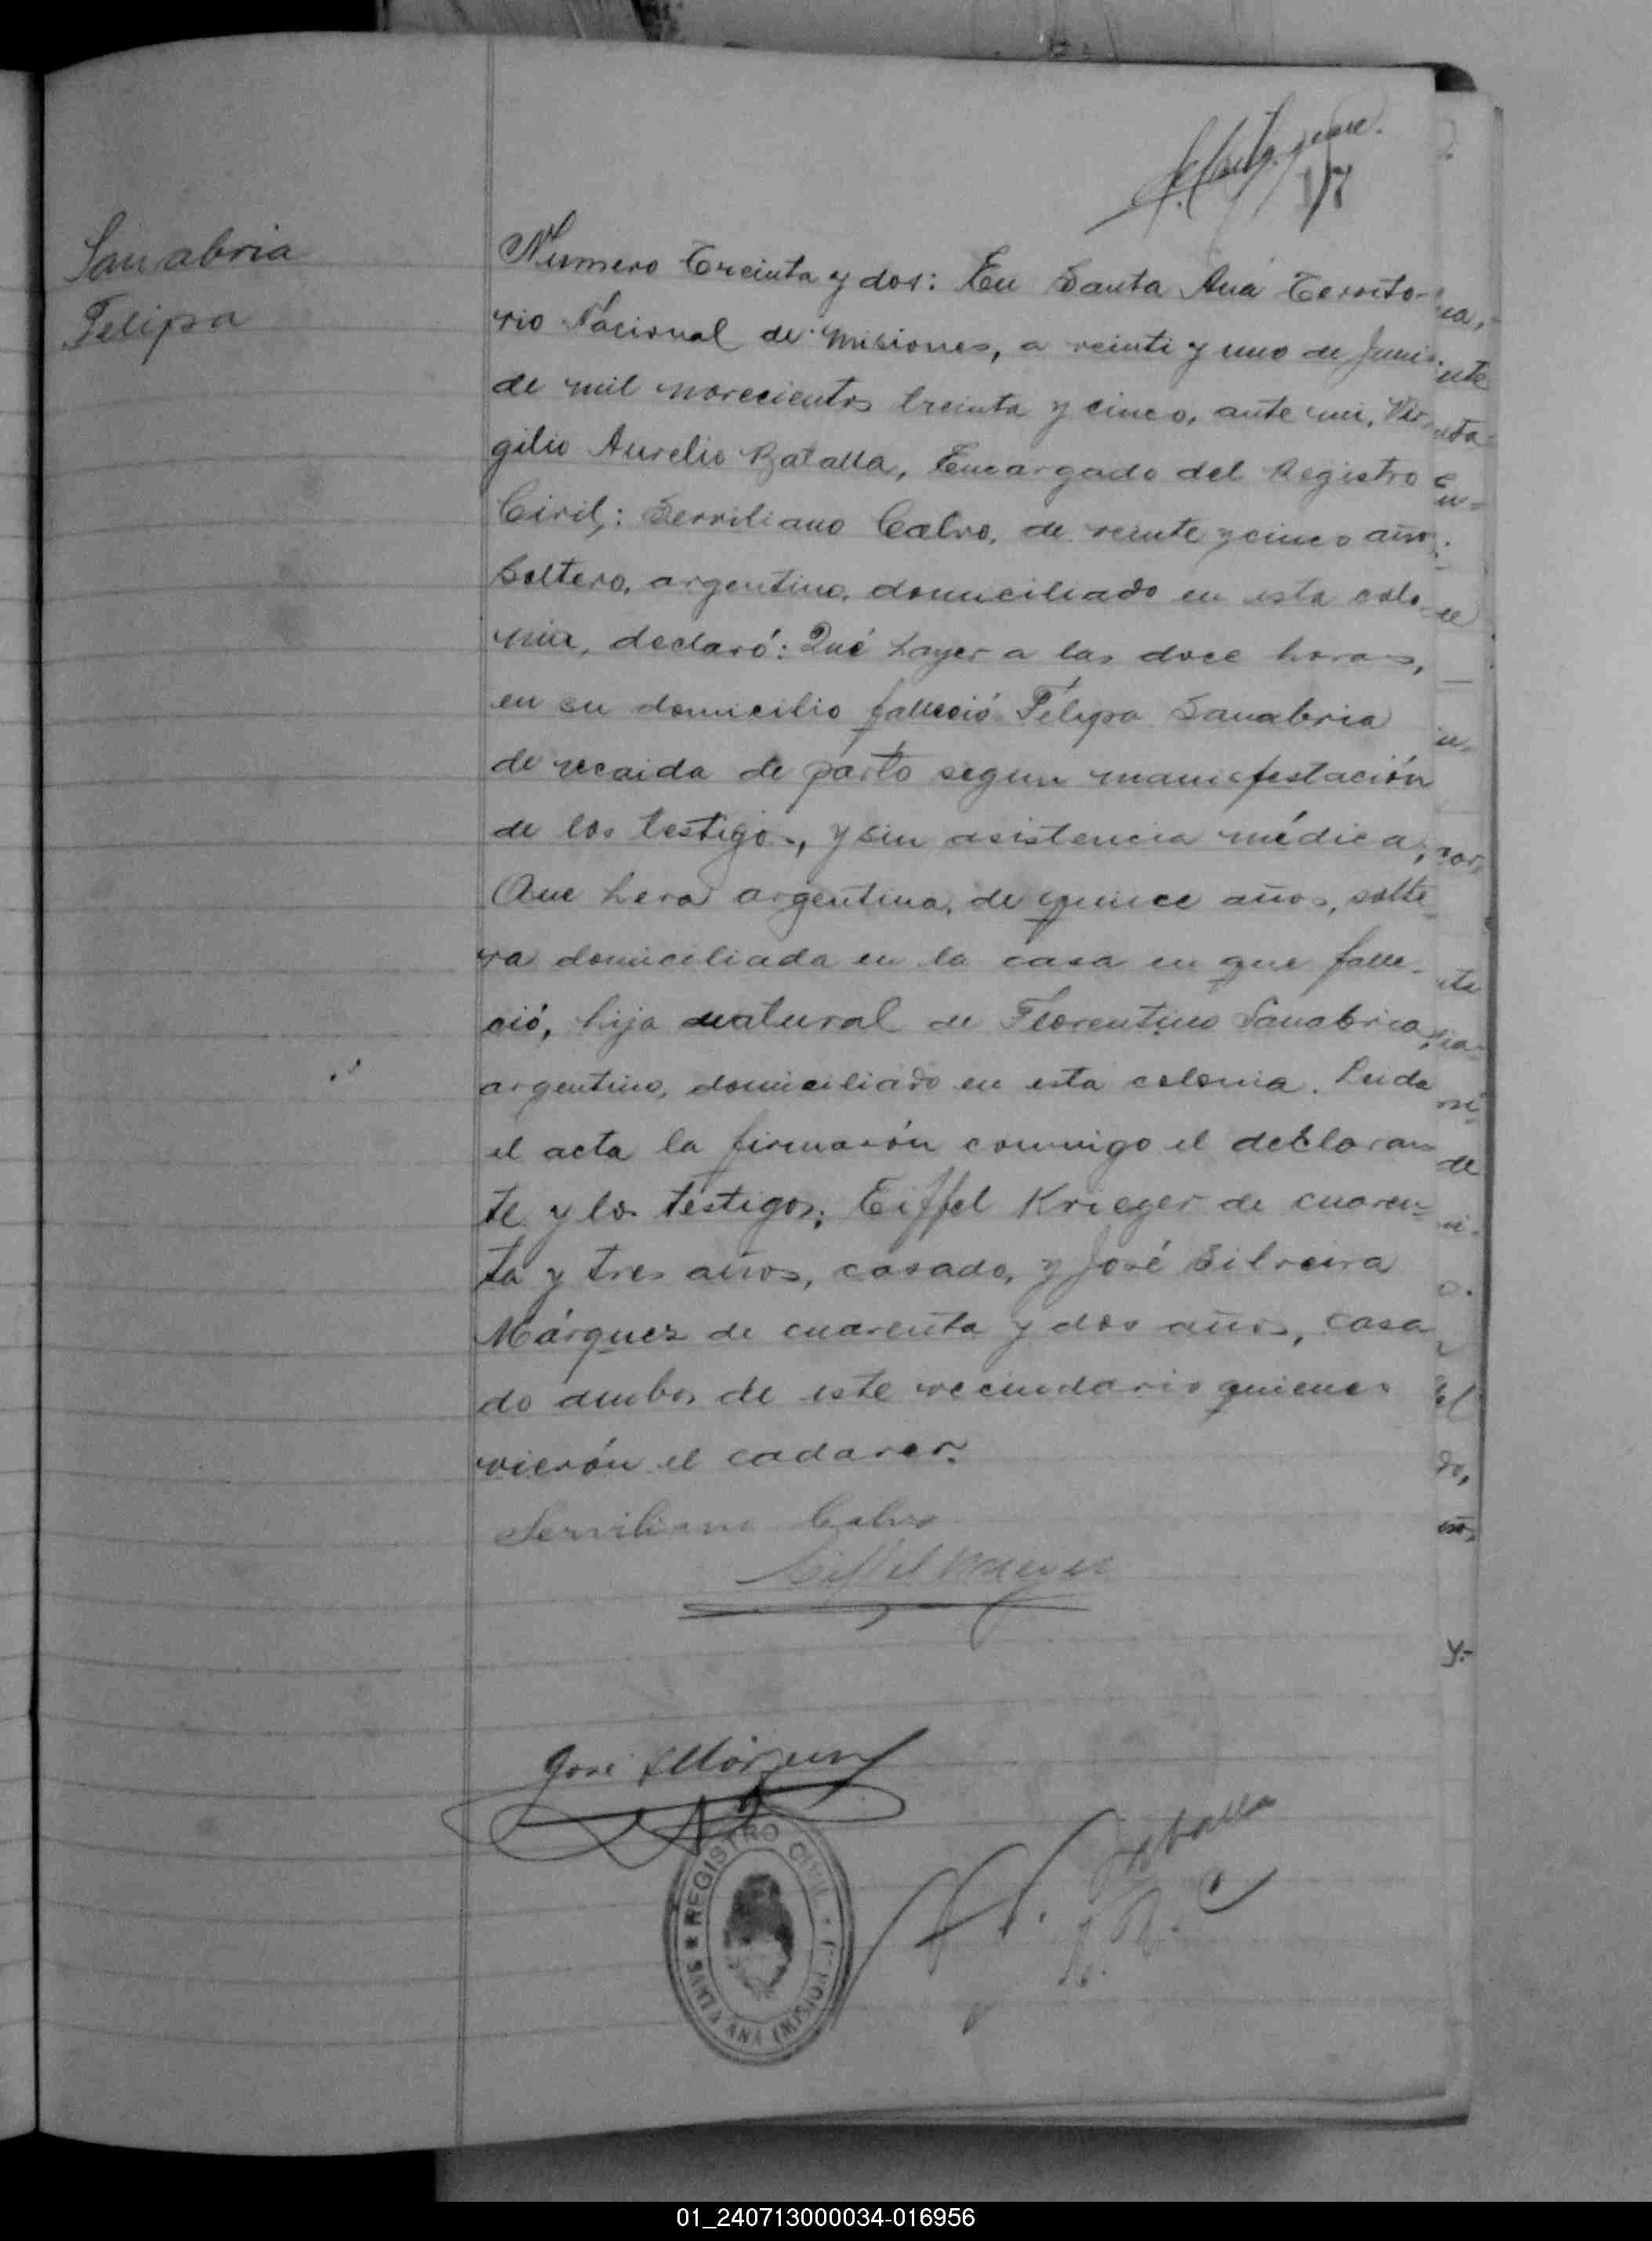 17
Sanabria
Felipa
Numero treinta y dos: En Santa Ana Territo-
rio Nacional de Misiones, a veinti y uno de Junio
de mil novecientos treinta y cinco, ante mi, Vir-
gilio Aurelio Batalla, Encargado del Registro
Civil,: Serviliano Calvo, de veinte y cinco años
soltero, argentino, domiciliado en esta colo-
nia, declaró: Qué hayer a las doce horas,
en su domicilio falleció Felipa Sanabria
de recaida de parto segun manifestación
de los testigos, y sin asistencia médica;
Que hera argentina, de quince años, solte-
ra domiciliada en la casa en que falle-
ció, hija natural de Florentino Sanabria,
argentino, domiciliado en esta colonia. Leida
el acta la firmarón conmigo el declaran-
te y los testigos; Eiffel Krieger de cuaren-
ta y tres años, casado, y José Silveira
Márquez de cuarenta y dos años, casa
do ambos de este vecindario quienes
vierón el cadaver.
Serviliano Calvo
Eiffel Krieger
José S Márquez
REGISTRO CIVIL
SANTA ANA (MISIONES)
V. A. Batalla
E. R. C
01_240713000034-016956